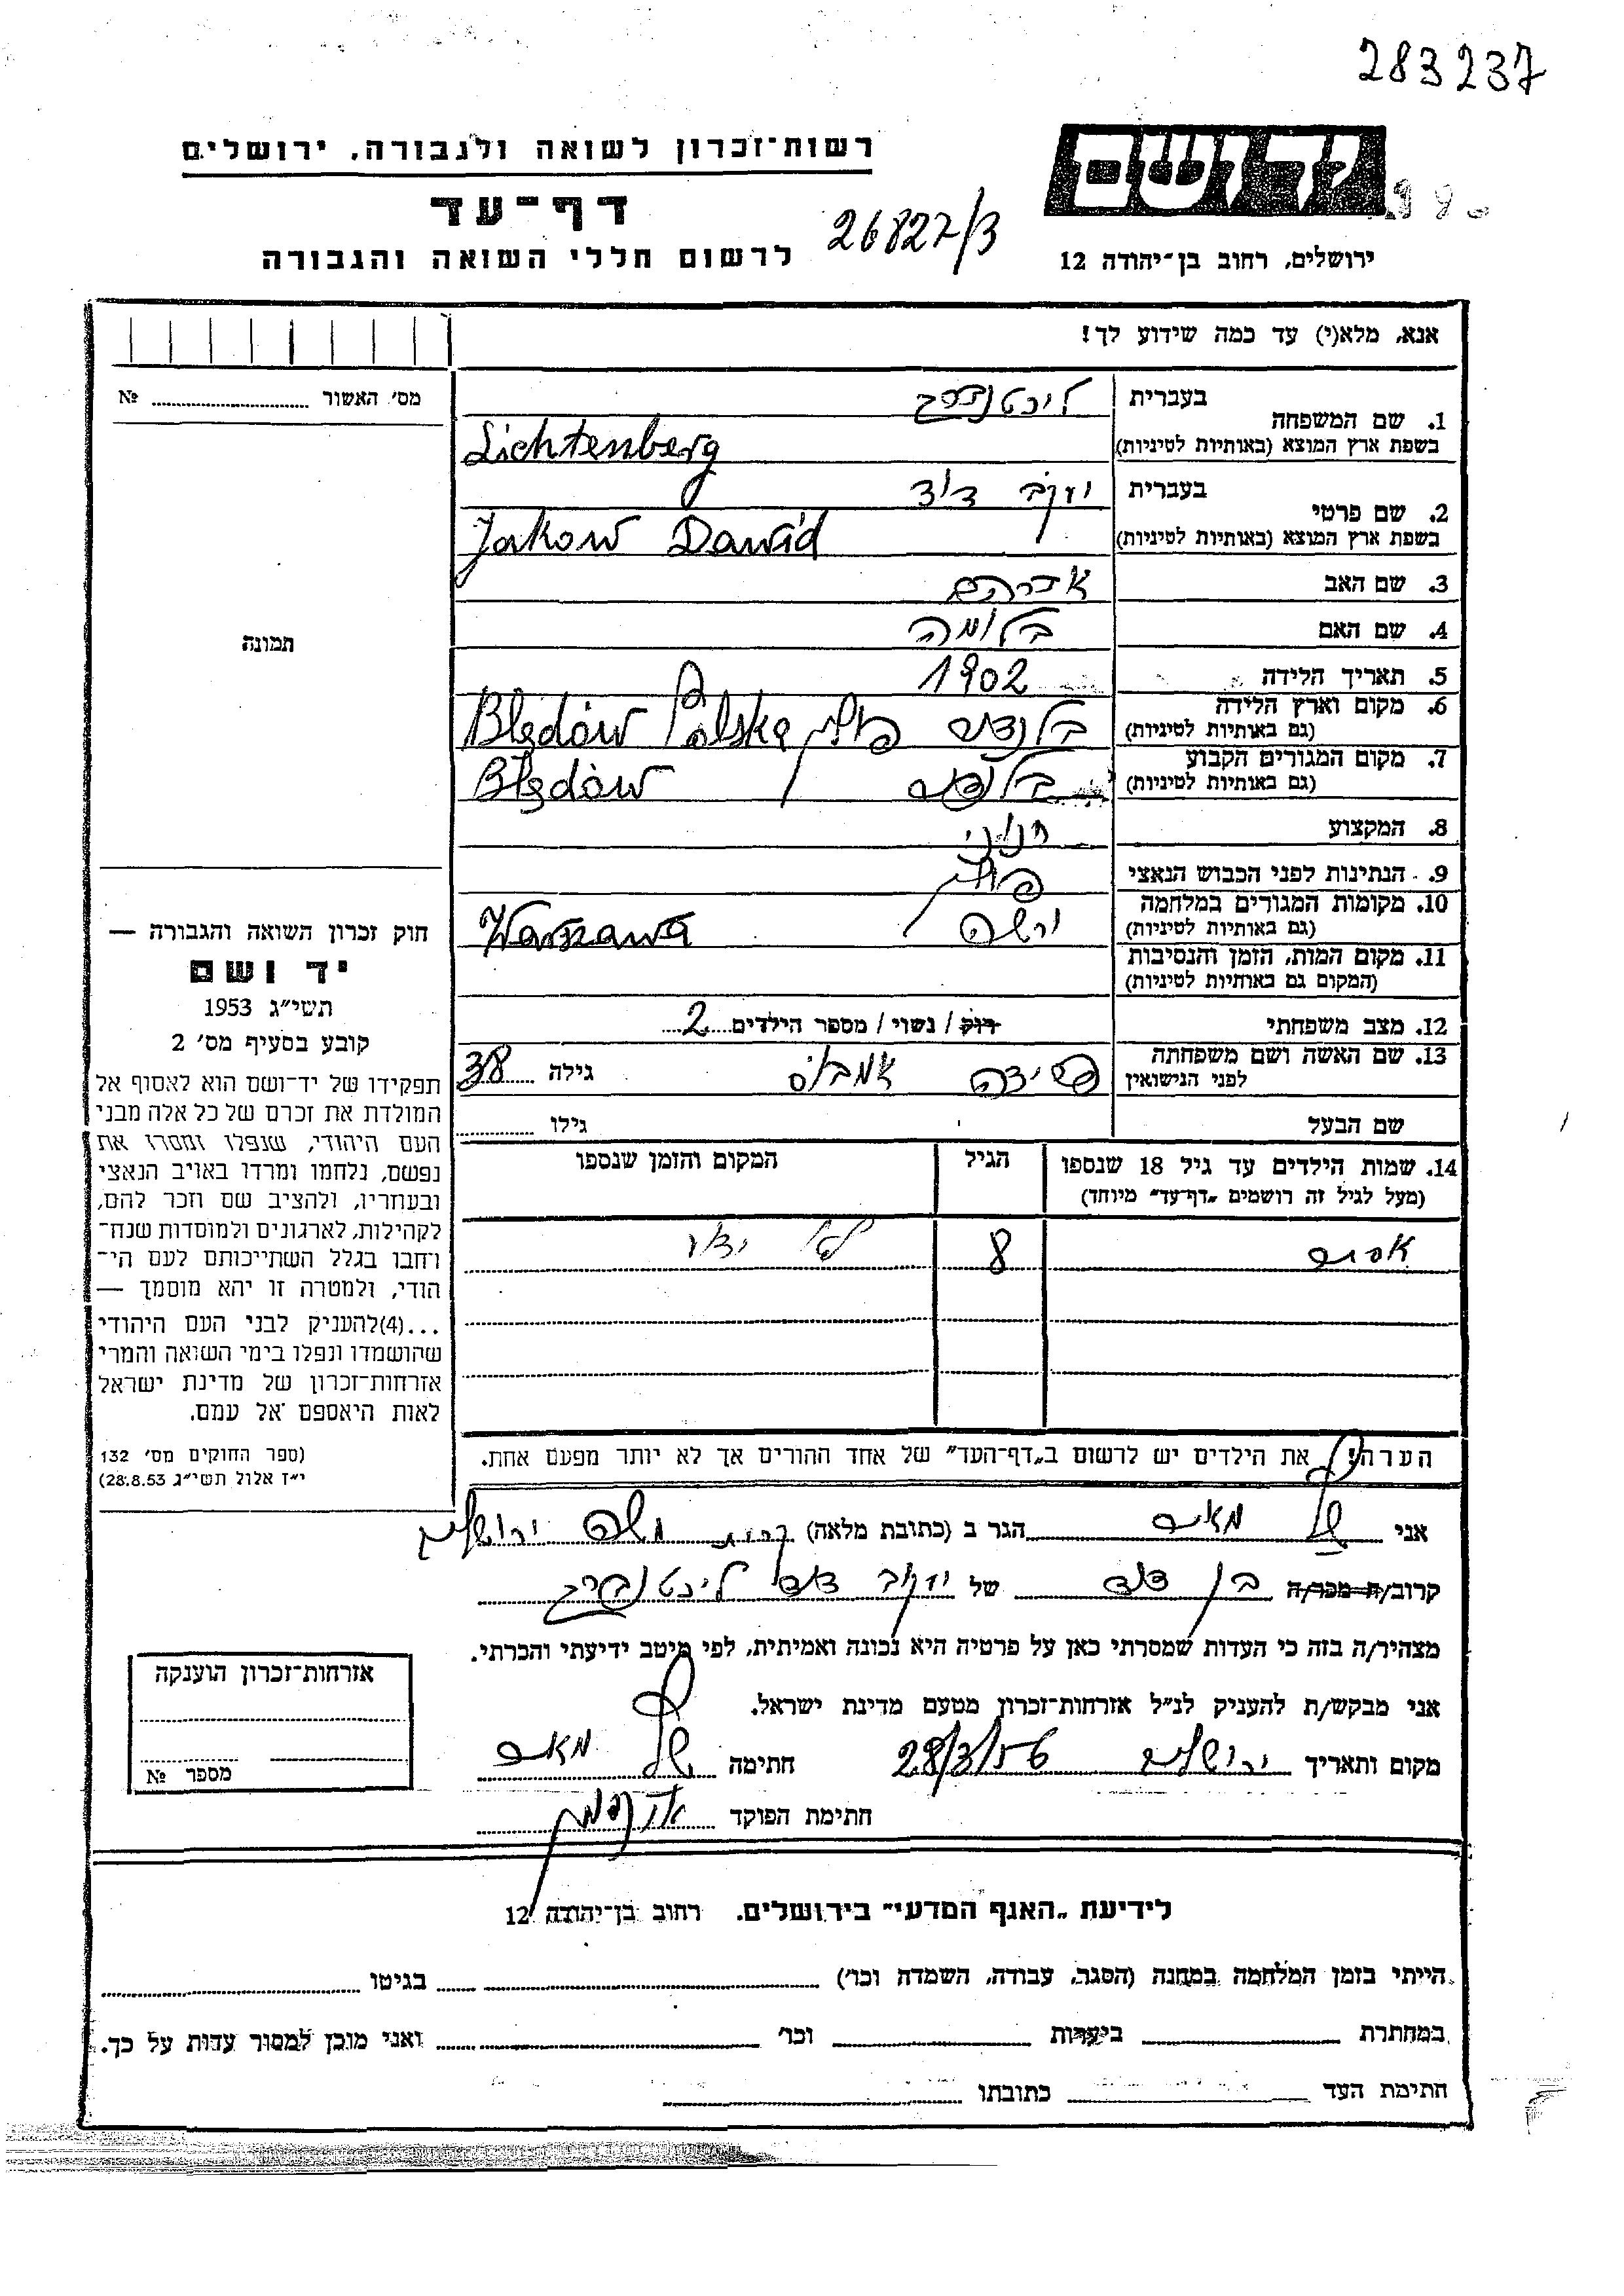 283237
רשות־זכרון לשואה ולגבורה, ירושלים
דף־עד
לרשום חללי השואה והגבורה
26827/3
ידושם
ירושלים, רחוב בן־יהודה 12
אנא, מלא(י) עד כמה שידוע לך!
מס׳ האשור № 
1. שם המשפחה
בעברית ליכטנברג
בשפת ארץ המוצא (באותיות לטיניות) Lichtenberg
2. שם פרטי
בעברית יעקב דוד
בשפת ארץ המוצא (באותיות לטיניות) Jakow Dawid
3. שם האב אברהם
4. שם האם בלומה
5. תאריך הלידה 1902
6. מקום וארץ הלידה
(גם באותיות לטיניות) פולין Błędów Polska
7. מקום המגורים הקבוע
(גם באותיות לטיניות) Błędów
8. המקצוע חנוני
9. הנתינות לפני הכבוש הנאצי פולין
10. מקומות המגורים במלחמה
(גם באותיות לטיניות) ורשה Warszawa
11. מקום המות, הזמן והנסיבות
(המקום גם באותיות לטיניות)
12. מצב משפחתי רוק / נשוי / מספר הילדים 2
13. שם האשה ושם משפחתה
לפני הנישואין גילה 38
שם הבעל גילו
14. שמות הילדים עד גיל 18 שנספו
(מעל לגיל זה רושמים „דף־עד״ מיוחד)
הגיל
המקום והזמן שנספו
אפרים 8 לא ידוע
הערה: את הילדים יש לרשום ב„דף־העד״ של אחד ההורים אך לא יותר מפעם אחת.
תמונה
חוק זכרון השואה והגבורה —
יד ושם
תשי״ג 1953
קובע בסעיף מס׳ 2
תפקידו של יד־ושם הוא לאסוף אל
המולדת את זכרם של כל אלה מבני
העם היהודי, שנפלו ומסרו את
נפשם, נלחמו ומרדו באויב הנאצי
ובעוזריו, ולהציב שם וזכר להם,
לקהילות, לארגונים ולמוסדות שנח־
רחבו בגלל השתייכותם לעם הי־
הודי, ולמטרה זו יהא מוסמך —
...(4)להעניק לבני העם היהודי
שהושמדו ונפלו בימי השואה והמרי
אזרחות־זכרון של מדינת ישראל
לאות היאספם אל עמם.
(ספר החוקים מס׳ 132
י״ז אלול תשי״ג 28.8.53)
אני מאיר הגר ב (כתובת מלאה) קרית משה ירושלים
קרוב/ה מכר/ה בן דוד של יעקב דוד ליכטנברג
מצהיר/ה בזה כי העדות שמסרתי כאן על פרטיה היא נכונה ואמיתית, לפי מיטב ידיעתי והכרתי.
אני מבקש/ת להעניק לנ״ל אזרחות־זכרון מטעם מדינת ישראל.
מקום ותאריך ירושלים 28/3/56 חתימה מאיר
חתימת הפוקד
אזרחות־זכרון הוענקה
מספר №
לידיעת „האגף המדעי״ בירושלים, רחוב בן־יהודה 12
הייתי בזמן המלחמה במחנה (הסגר, עבודה, השמדה וכו׳) בגיטו
במחתרת ביערות וכו׳ ואני מוכן למסור עדות על כך.
חתימת העד כתובתו